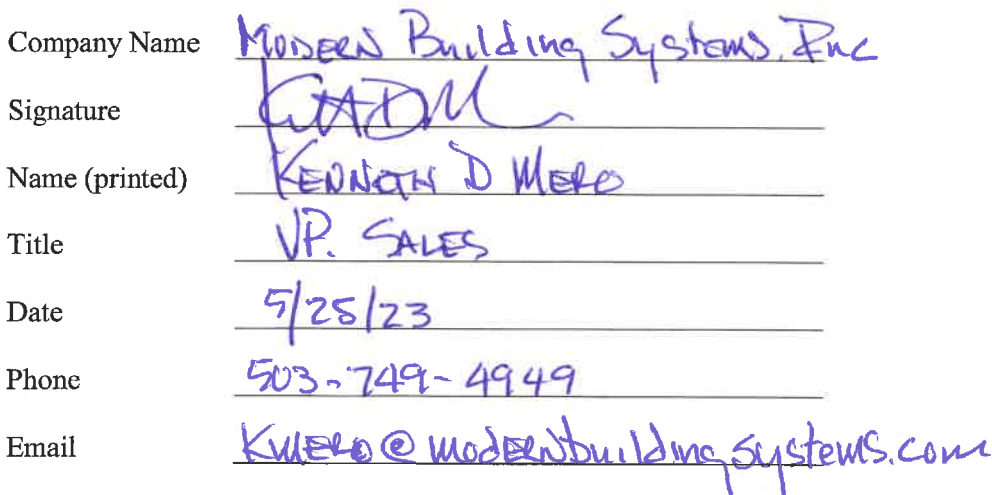 Company Name Modern Building Systems, Inc
Signature
Name (printed) Kenneth D Mero
Title VP. Sales
Date 5/25/23
Phone 503-749-4949
Email Kmero@modernbuildingsystems.com